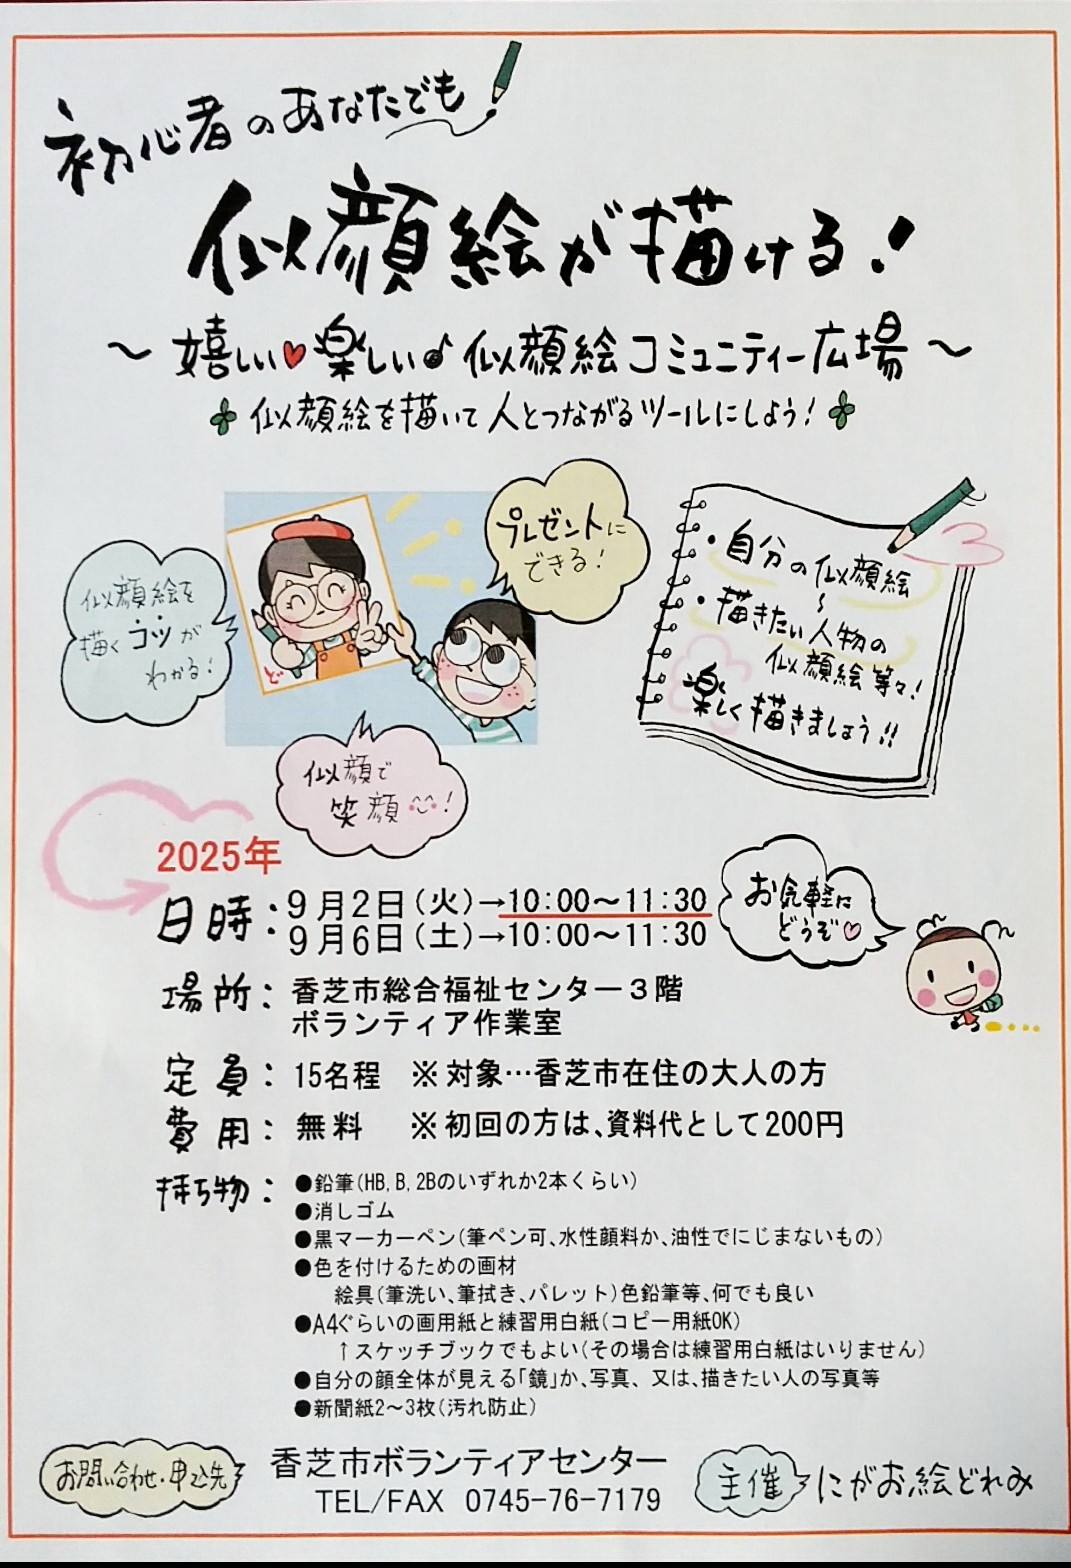 初心者のあなたでも
似顔絵が描ける!
～嬉しい♥楽しい♪似顔絵コミュニティー広場～
似顔絵を描いて人とつながるツールにしよう!
プレゼントに
できる!
似顔絵を
描くコツが
わかる!
ど
似顔で
笑顔^^!
・自分の似顔絵
～
・描きたい人物の
似顔絵等々!
楽しく描きましょう!!
2025年
日時:9月2日(火)→10:00～11:30
9月6日(土)→10:00～11:30
お気軽に
どうぞ♡
場所:香芝市総合福祉センター3階
ボランティア作業室
定員:15名程 ※対象…香芝市在住の大人の方
費用:無料 ※初回の方は、資料代として200円
持ち物:●鉛筆(HB,B,2Bのいずれか2本くらい)
●消しゴム
●黒マーカーペン(筆ペン可、水性顔料か、油性でにじまないもの)
●色を付けるための画材
絵具(筆洗い、筆拭き、パレット)色鉛筆等、何でも良い
●A4ぐらいの画用紙と練習用白紙(コピー用紙OK)
↑スケッチブックでもよい(その場合は練習用白紙はいりません)
●自分の顔全体が見える「鏡」か、写真、又は、描きたい人の写真等
●新聞紙2～3枚(汚れ防止)
お問い合わせ・申込先 香芝市ボランティアセンター
TEL/FAX 0745-76-7179
主催 にがお絵どれみ